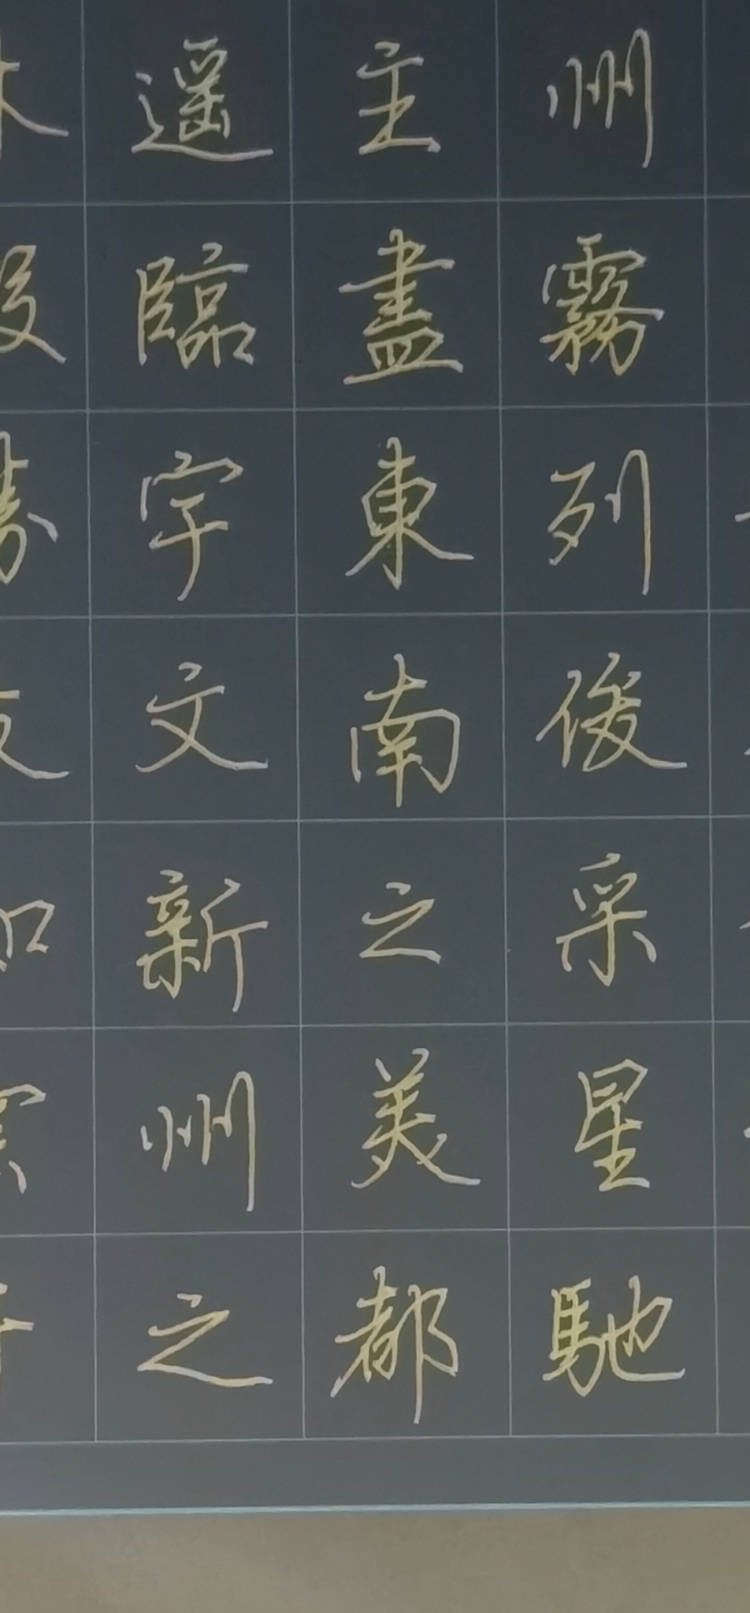 州霧列俊采星馳
主盡東南之美都
遥臨宇文新州之